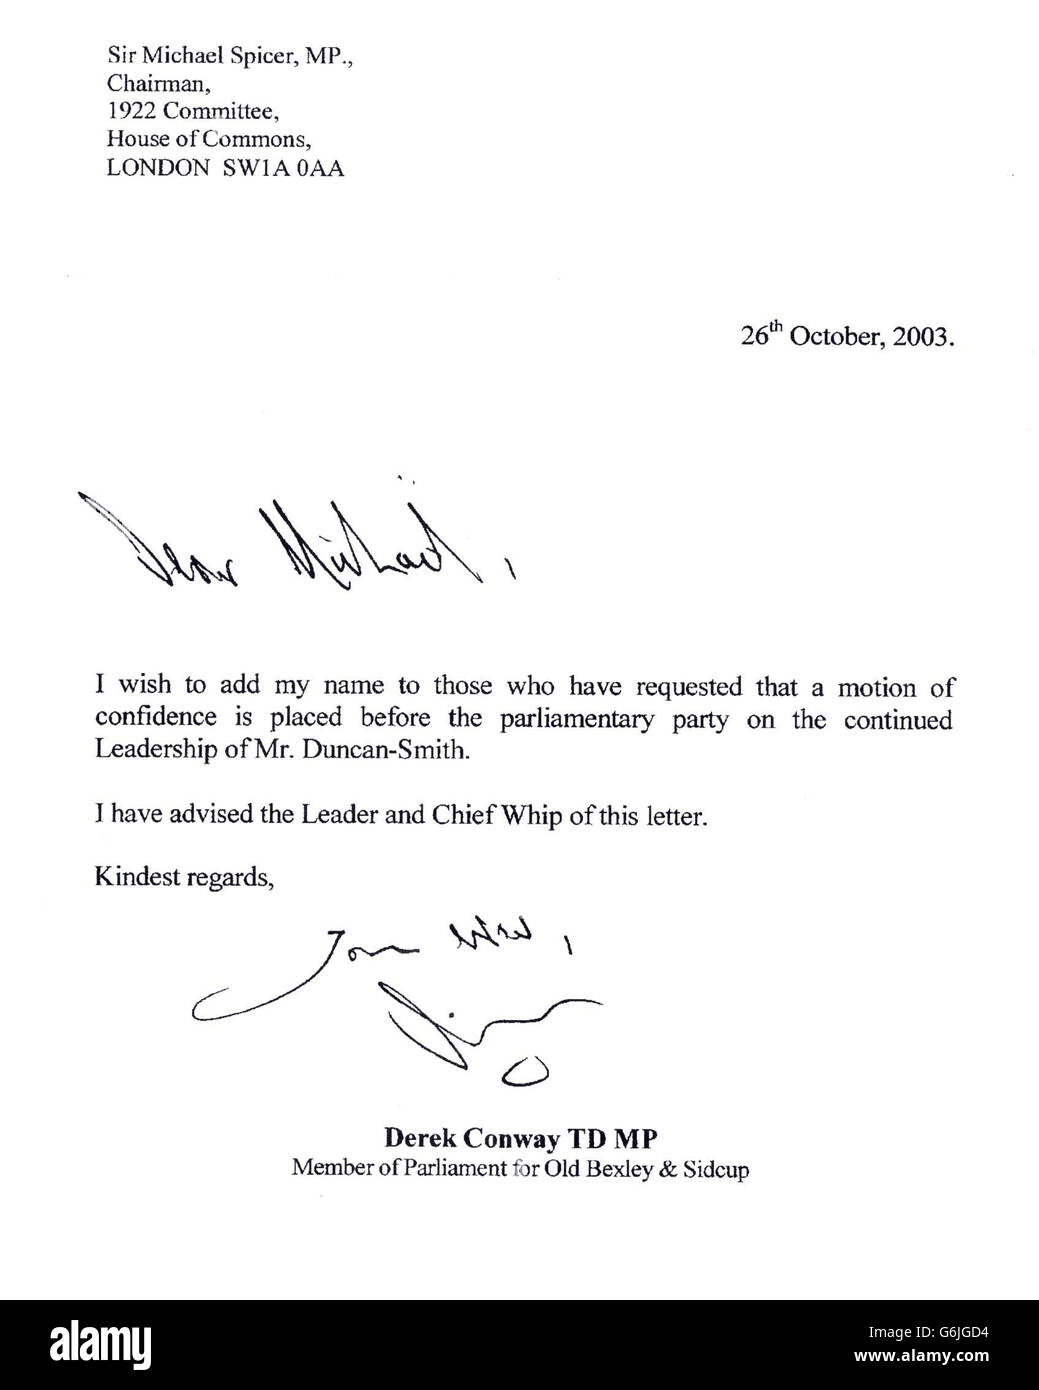 Sir Michael Spicer, MP.,
Chairman,
1922 Committee,
House of Commons,
LONDON SW1A 0AA
26th October, 2003.
Dear Michael,
I wish to add my name to those who have requested that a motion of
confidence is placed before the parliamentary party on the continued
Leadership of Mr. Duncan-Smith.
I have advised the Leader and Chief Whip of this letter.
Kindest regards,
Derek Conway TD MP
Member of Parliament for Old Bexley & Sidcup
alamy
Image ID: G6JGD4
www.alamy.com